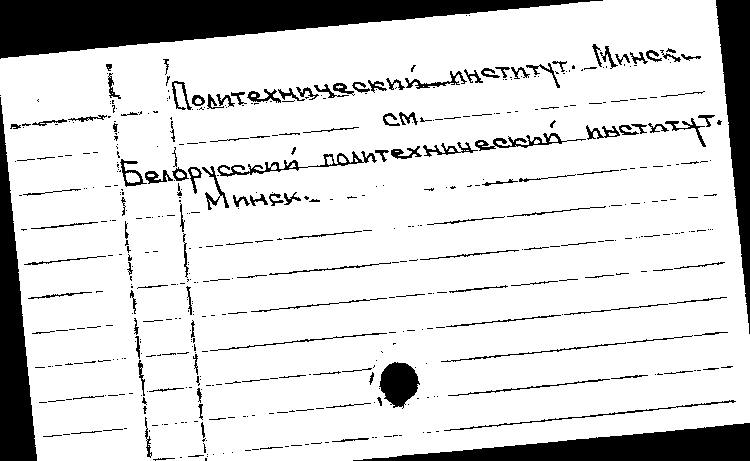 Политехнический институт. Минск.
см.
Белорусский политехнический институт.
Минск.